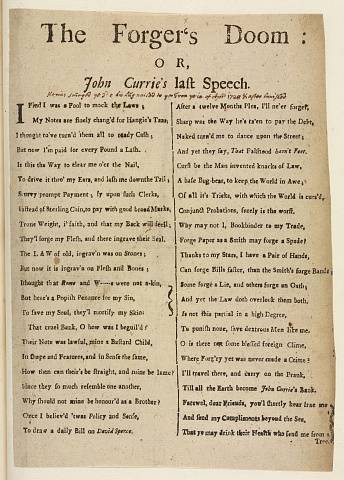 The Forger's Doom:
OR,
John Currie's last Speech.
I Find I was a Fool to mock the Laws;
My Notes are finely chang'd for Hangie's Taws;
I thought to've turn'd them all to ready Cash;
But now I'm paid for every Pound a Lash.
Is this the Way to clear me o'er the Nail,
To drive it thro' my Ears, and lash me down the Tail;
Scurvy prompt Payment; fy upon such Clerks,
Instead of Sterling Coin, to pay with good broad Marks,
Trone Weight, i' faith, and that my Back will feel;
They'll forge my Flesh, and there ingrave their Seal.
The LAW of old, ingrav'n was on Stones;
But now it is ingrav'n on Flesh and Bones;
I thought that Rome and W----s were not a-kin,
But here's a Popish Penance for my Sin,
To save my Soul, they'll mortify my Skin:
That cruel Bank, O how was I beguil'd?
Their Note was lawful, mine a Bastard Child,
In Shape and Features, and in Sense the same,
How then can their's be Straight, and mine be lame?
Since they so much resemble one another,
Why should not mine be honour'd as a Brother?
Once I believ'd 'twas Policy and Sense,
To draw a daily Bill on David Spence.
After a twelve Months Plea, I'll ne'er forget,
Sharp was the Way he's ta'en to pay the Debt,
Naked caus'd me to dance upon the Street;
And yet they say, That Falshood hasn't Feet.
Curst be the Man invented knacks of Law,
A base Bug-bear, to keep the World in Awe;
Of all it's Tricks, with which the World is curs'd,
Conjunct Probations, surely is the worst.
Why may not I, Bookbinder to my Trade,
Forge Paper as a Smith may forge a Spade?
Thanks to my Stars, I have a Pair of Hands,
Can forge Bills faster, than the Smith's forge Bands;
Some forge a Lie, and others forge an Oath;
And yet the Law doth overlook them both,
Is not this partial in a high Degree,
To punish none, save dextrous Men like me.
O is there not some blessed foreign Clime,
Where Forg'ry yet was never made a Crime?
I'll travel there, and carry on the Prank,
Till all the Earth become John Currie's Bank.
Farewel, dear Friends, you'll shortly hear from me
And send my Compliments beyond the Sea,
That ye may drink their Health who send me from a
Tree.